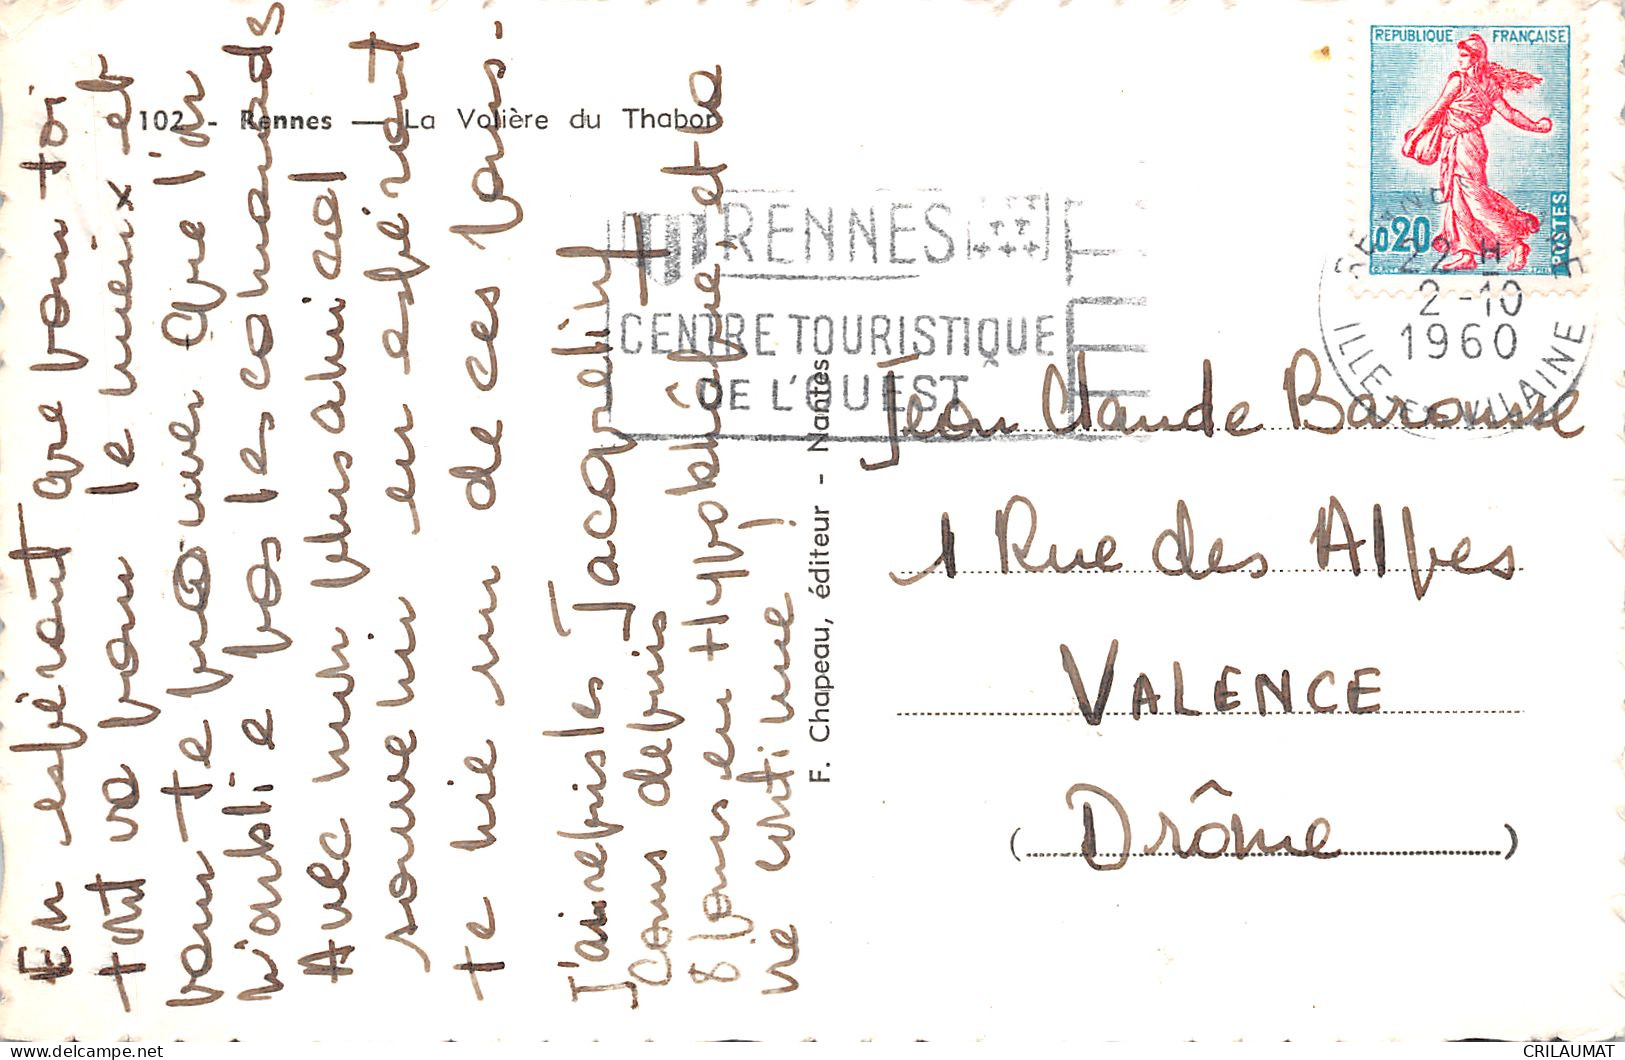 102 - Rennes — La Volière du Thabor
REPUBLIQUE FRANÇAISE
0,20
POSTES
RENNES
CENTRE TOURISTIQUE
DE L'OUEST
22 H
2-10
1960
ILLE ET VILAINE
En espérant que pour toi
tout va pour le mieux et
pour te prouver que l'on
n'oublie pas les copains
Avec mon plus amical
souvenir en espérant
te mie un de ces jours.
J'ai repris les
cours depuis
8 jours en Hypokhâgne, et la
vie continue!
Jacqueline
F. Chapeau, éditeur - Nantes
Jean Claude Barousse
1 Rue des Alpes
VALENCE
(Drôme)
CRILAUMAT